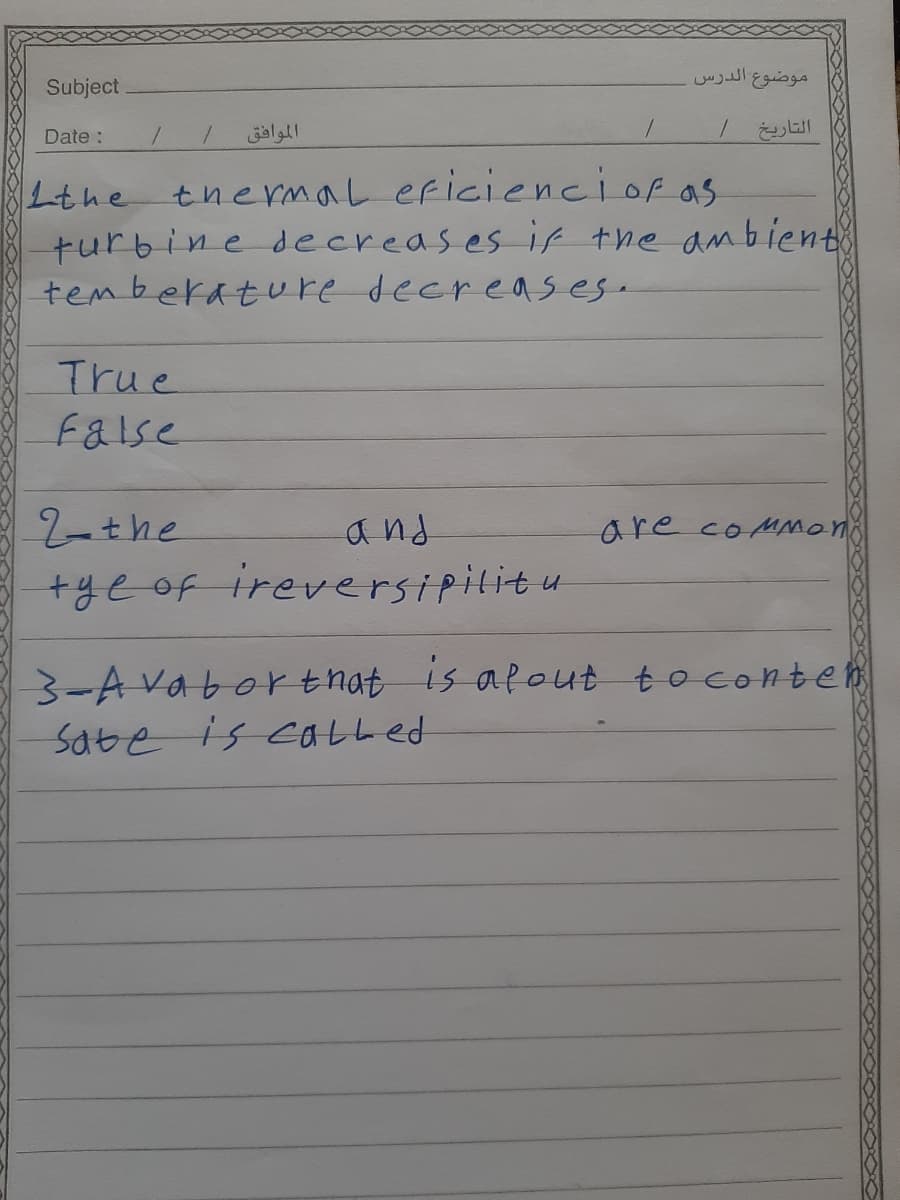 Subject موضوع الدرس
Date : / / الموافق / / التاريخ
1 the thermal eficienci of as
turbine decreases if the ambient
temberature decreases.
True
False
2-the and are common
tye of ireversipilitu
3-A vabor that is apout to conten
sate is called